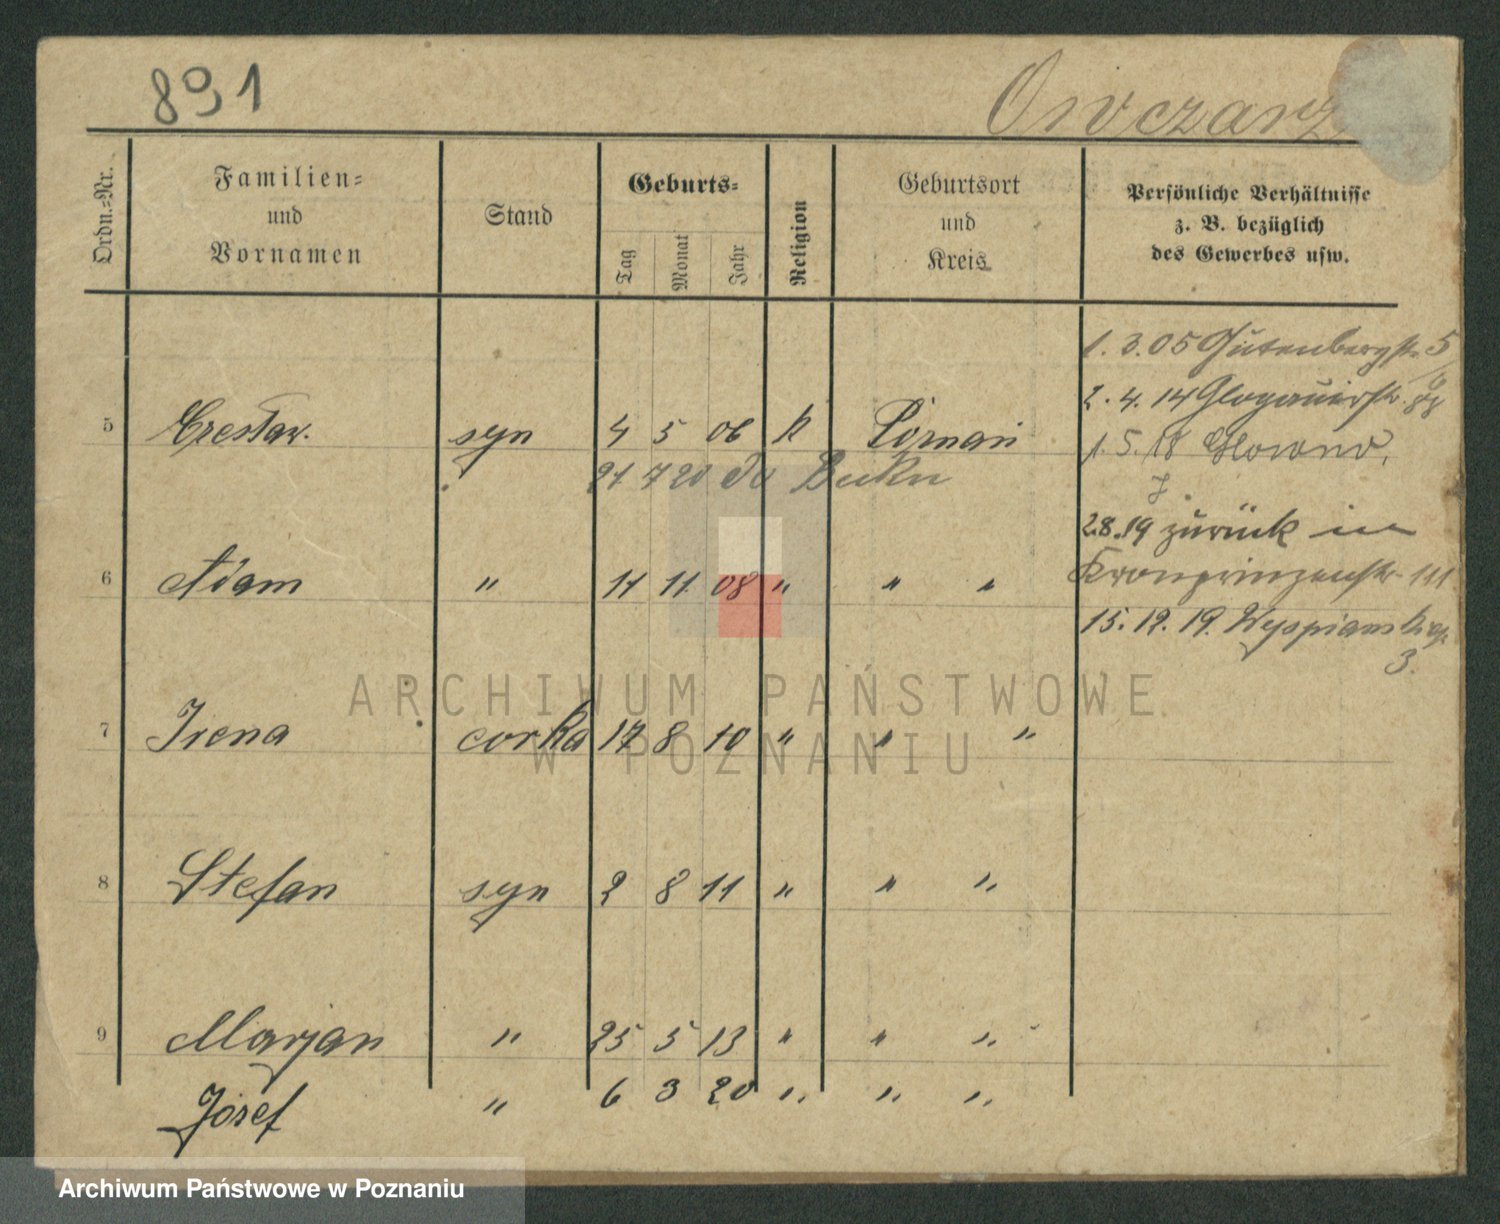 891
Owczarz
Ordn.-Nr.
Familien-
und
Vornamen
Stand
Geburts-
Tag
Monat
Jahr
Religion
Geburtsort
und
Kreis
Persönliche Verhältnisse
z. B. bezüglich
des Gewerbes usw.
1. 3. 05 Gutenbergstr. 5
2. 4. 14 Glogauerstr.
5 Czesław. syn 4 5 06 k Poznań
1. 5. 18
21 7 20 do Buku
2.8.19 zurück in
6 Adam " 11 11 08 " " "
Kronprinzenstr. 111
15. 12. 19. Wyspiańskiego
3.
7 Irena corka 17 8 10 " " "
8 Stefan syn 2 8 11 " " "
9 Marjan " 25 5 13 " " "
Józef " 6 3 20 " " "
ARCHIWUM PAŃSTWOWE
W POZNANIU
Archiwum Państwowe w Poznaniu